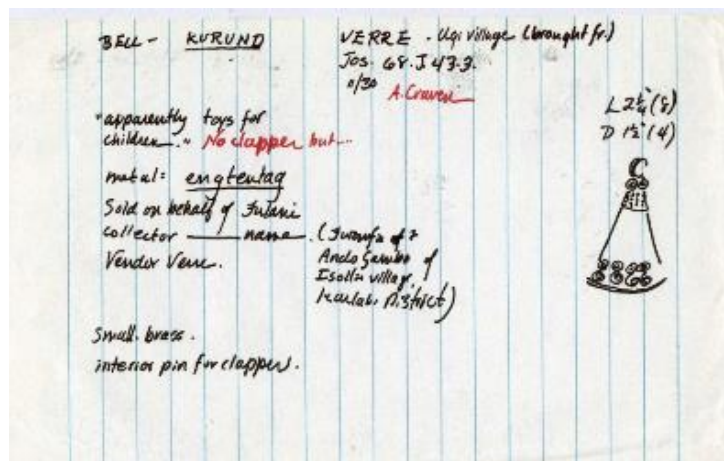 BELL - KURUND
VERRE - Ugi village (brought fr.)
Jos. 68.J 43.3.
0/30
A. Craven
L 2¼" (5)
D 1½" (4)
"apparently toys for
children." No clapper but...
metal: engtentag
Sold on behalf of Fulani
collector ____ name. (
Vendor Verre.
of
village,
District)
Small. brass.
interior pin for clapper.